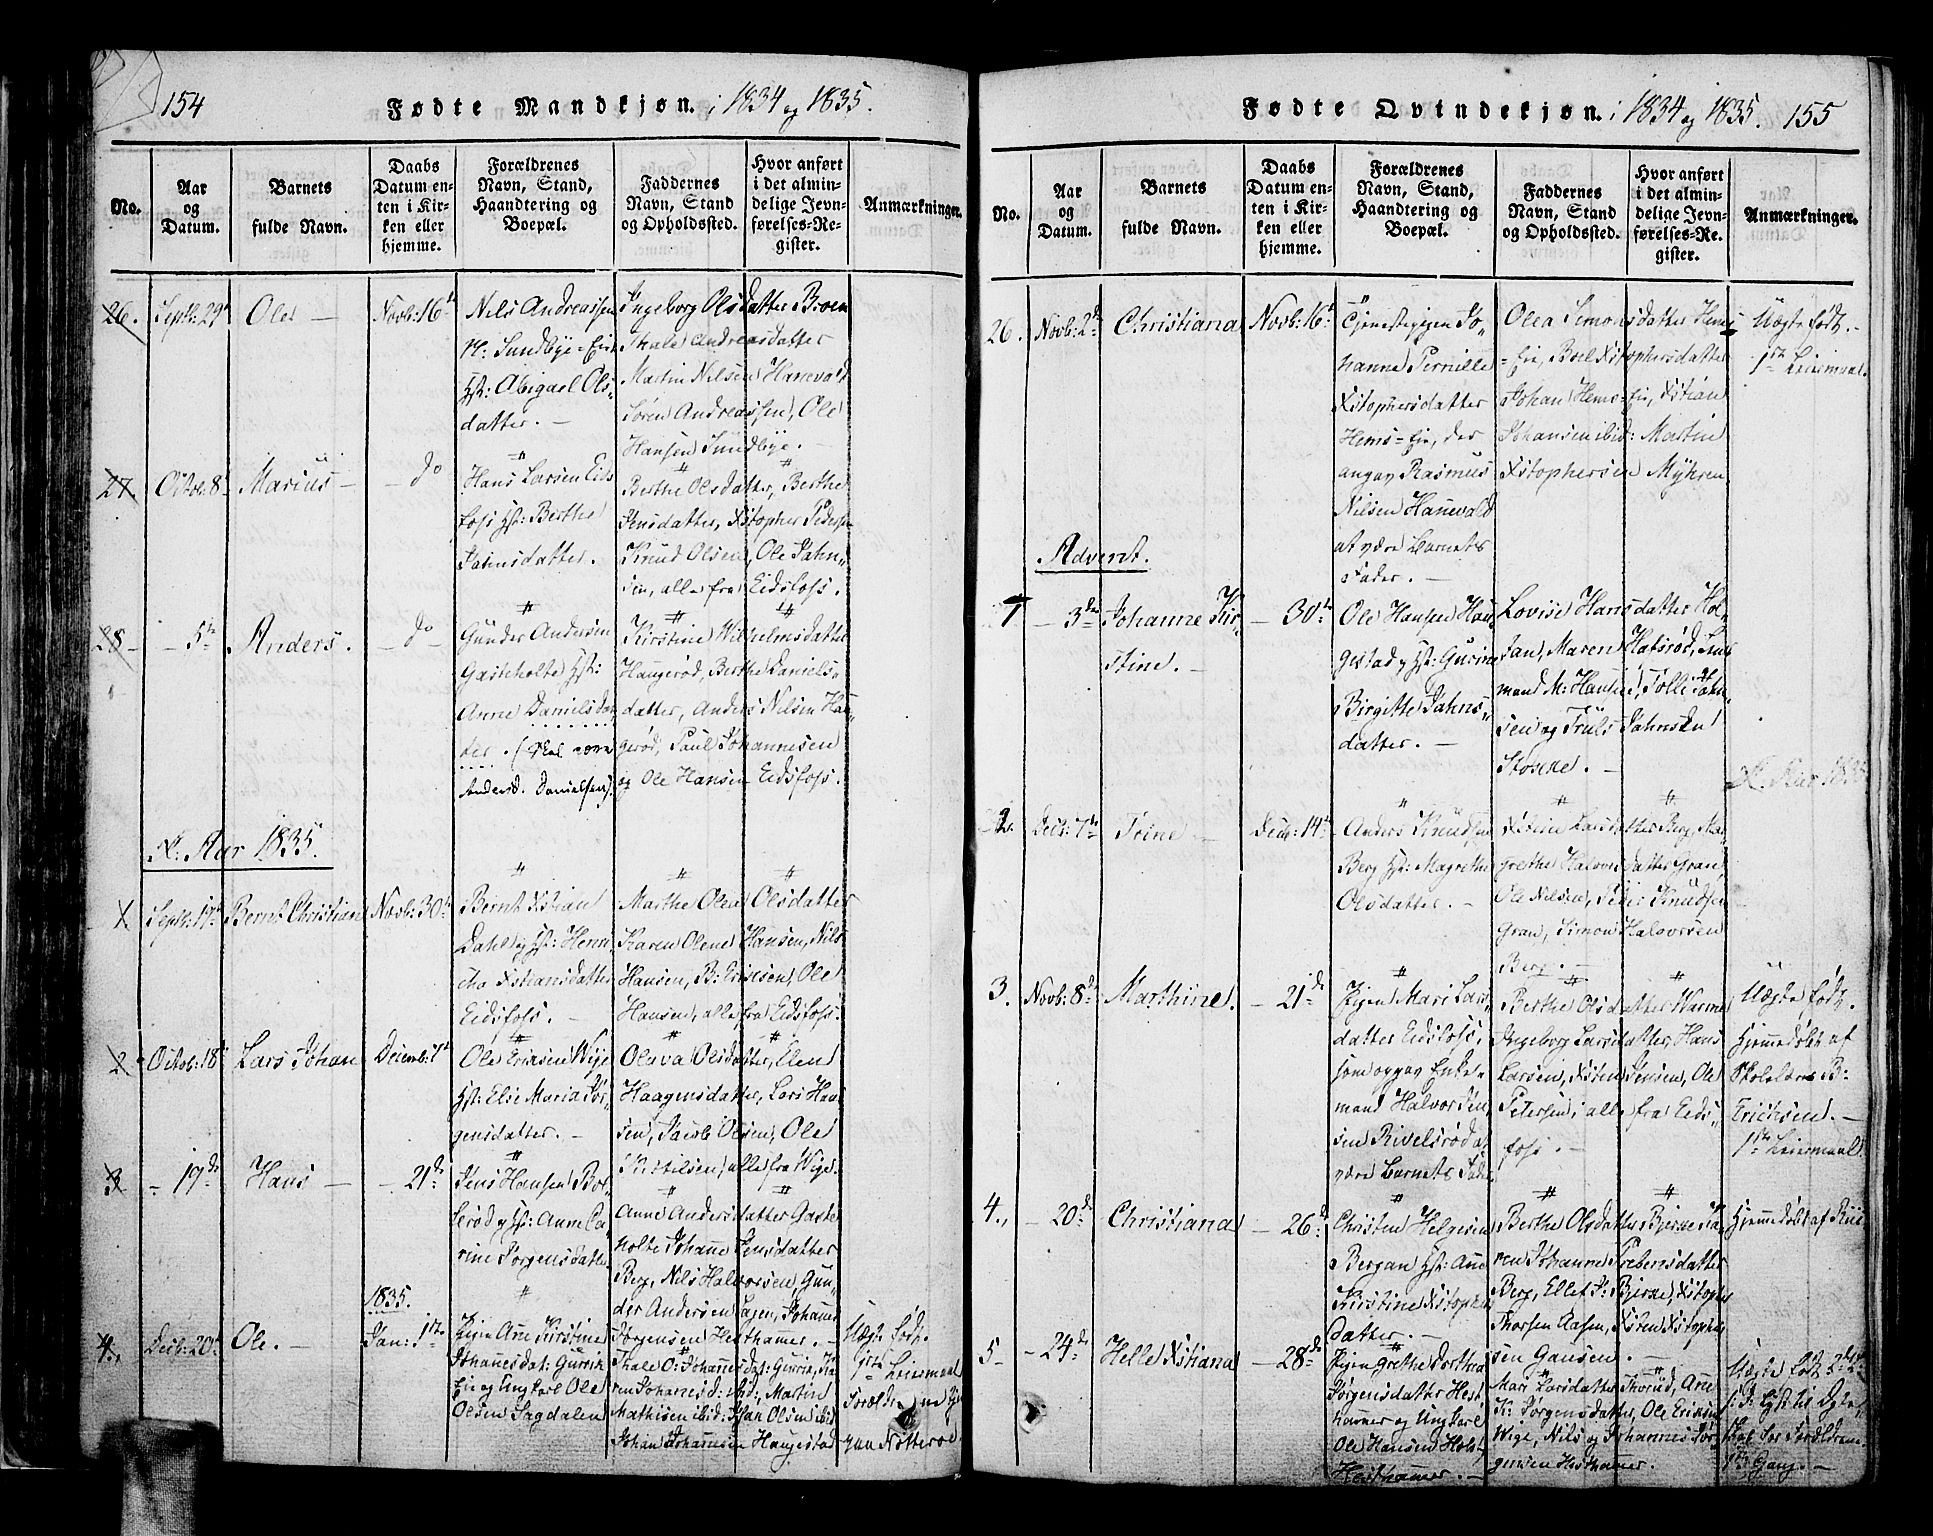 154
Fødte Mandkjøn. i 1834 og 1835.
No.
Aar
og
Datum.
Barnets
fulde Navn.
Daabs
Datum en-
ten i Kir-
ken eller
hjemme.
Forældrenes
Navn, Stand,
Haandtering og
Boepæl.
Faddernes
Navn, Stand
og Opholdssted.
Hvor anført
i det almin-
delige Jevn-
førelses-Re-
gister.
Anmærkninger.
26.
Septb: 29
Ole
Novb: 16
Nils Andreassen
Sundbye-Eie
Hst: Abigael Ols
datter.
Ingeborg Olsdatter Broen
Thale Andreasdatter
Martin Nilsen Hanevald
Søren Andreassen, Ole
Hansen Sundbye.
27.
Octob: 8
Marius
do
Hans Larsen Eids
foss Hst: Berthe
Jahnsdatter.
Berthe Olsdatter, Berthe
Jensdatter, Xstopher Peders
Knud Olsen, Ole Jahn
sen, alle fra Eidsfoss.
28
5
Anders.
do
Gunder Andersen
Gasteholte Hst:
Anne Danielsdat
ter. (skal være
Anders d. Danielsen)
Kirstine Wilhelmsdatter
Haugerød, Berthe Daniels
datter, Anders Nilsen Hau
gerød, Paul Johannesen
og Ole Hansen Eidsfoss.
K: Aar 1835.
1
Septb: 17
Bernt Christian
Novb: 30
Bernt Xstian
Dahl og Hst: Henri
cha Xstiansdatter
Eidsfoss.
Marthe Olea Olsdatter
Karen Olene Hansen, Nils
Hansen, B: Ericsen, Ole
Hansen, alle fra Eidsfoss.
2
Octob: 18
Lars Johan
Decemb: 7
Ole Ericsen Wige
Hst: Elie Maria Jør
gensdatter.
Olava Olsdatter, Elen
Haagensdatter, Lars Han
sen, Jacob Olsen, Ole
Kittilsen, alle fra Wige.
3
17
Hans
21
Jens Hansen Bol
lerød og Hst: Anne Ca
rine Jørgensdatter
Anne Andersdatter Gaste
holte Johanne Jensdatter
Berg, Nils Halvorsen, Gun
der Andersen Johannes
Jørgensen Hesthamer.
4.
Decb: 20
Ole.
1835.
Jan: 1
Pigen Ane Kirstine
Johannesdat: Gurrie
Eie og Ungkarl Ole
Olsen Sagdalen
Thale O: Johannesdat: Gurrie, Ka
ren Johannesd: ibid, Martin
Mathisen ibid: Olsen ibid
Johan Johannesen Haugestad
Uægte født.
1ste Leiermaal
Forældrene
paa Nøtterøe
Fødte Qvindekjøn. i 1834 og 1835. 155
No.
Aar
og
Datum.
Barnets
fulde Navn.
Daabs
Datum en-
ten i Kir-
ken eller
hjemme.
Forældrenes
Navn, Stand,
Haandtering og
Boepæl.
Faddernes
Navn, Stand
og Opholdssted.
Hvor anført
i det almin-
delige Jevn-
førelses-Re-
gister.
Anmærkninger.
26.
Novb: 2
Christiana
Novb: 16
Tjenestepigen Jo
hanne Pernille
Xstophersdatter
Hems-Eie, der
angav Rasmus
Nilsen Hanevald
at være Barnets
Fader.
Olea Simonsdatter Hems
Eie, Boel Xstophersdatter
Johan Hems-Eie, Xstian
Johansen ibid: Martin
Xstophersen Myhren
Uægte født.
1ste Leiermaal.
Advent.
1
3
Johanne Kir
stine.
30
Ole Hansen Hau
gestad og Hst: Gurine
Birgitte Jahns
datter.
Lovise Hansdatter Hol
Jan, Maren Hatsrød,
mand M: Hansen, Tolle Jahn
sen og Truls Jahnsen
K: Aar 1835
2
Decb: 7
Trine
Decb: 14
Anders Knudsen
Berg Hst: Magrethe
Olsdatter.
Xstine Larsdatter Berg, Mar
grethe Halvorsdatter Gran
Ole Nilsen, Peder Knudsen
Gran, Simon Halvorsen
Berg.
3.
Novb: 8
Marthine.
21
Pigen Mari Lars
datter Eidsfoss,
som opgav Enke
mand Halvor Jen
sen Rivelsrød at
være Barnets Fader
Berthe Olsdatter Warme
Ingeborg Larsdatter, Hans
Larsen, Xsten Jensen, Ole
Petersen, alle fra Eids
foss.
Uægte født.
Hjemmedøbt af
Skolelærer B:
Erichsen.
1ste Leiermaal.
4.
20
Christiana
26
Christen Helgesen
Bergan Hst: Ane
Kirstine Xstophers
datter.
Berthe Olsdatter Bjerke, Ka
ren Johanne Prebensdatter
Berg, Ellef P: Bjerke, Xstopher
Thorsen Aasen, Xsten Xstopher
sen Gaasen.
Hjemmedøbt af
5
24
Helle Xstiana
28
Pigen Grethe Dorthea
Jørgensdatter Hest
hammer og Ungkarl
Ole Hansen Holst
Hesthammer.
Mari Larsdatter Thorud, Ane
K: Jørgensdatter, Ole Ericsen
Wige, Nils og Johannes Jør
gensen Hesthamer.
Uægte født
for Forældrene
1ste Gang.